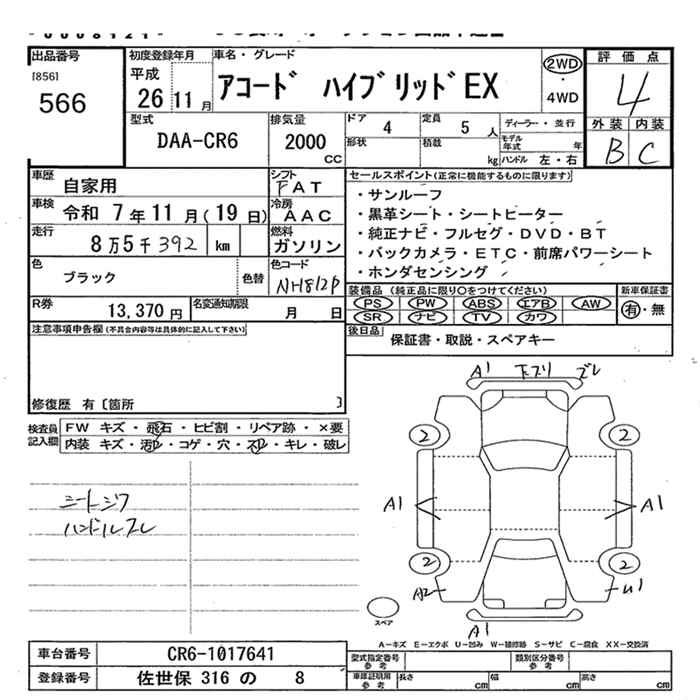 出品番号
[856]
566
初度登録年月
平成
26 11 月
車名・グレード
アコード ハイブリッドEX
2WD
・
4WD
評価点
4
外装 内装
B C
型式
DAA-CR6
排気量
2000
CC
ドア
4
定員
5 人
ディーラー・並行
形状
積載
kg
モデル年式
年
ハンドル 左・右
車歴
自家用
シフト
FAT
車検
令和 7 年 11 月 ( 19 日)
冷房
AAC
走行
8 万 5 千 392 km
燃料
ガソリン
色
ブラック
色替
色コード
NH812P
R券
13,370 円
名変通知期限
月 日
セールスポイント(正常に機能するものに限ります)
・サンルーフ
・黒革シート・シートヒーター
・純正ナビ・フルセグ・DVD・BT
・バックカメラ・ETC・前席パワーシート
・ホンダセンシング
装備品 (純正品に限り○をつけてください)
PS PW ABS エアB AW
SR ナビ TV カワ
新車保証書
有・無
後日品
保証書・取説・スペアキー
注意事項申告欄(不具合内容等は具体的に記入して下さい)
修復歴 有〔箇所 〕
検査員記入欄
FW キズ・飛石・ヒビ割・リペア跡・×要
内装 キズ・汚レ・コゲ・穴・スレ・キレ・破レ
シートシワ
ハンドルスレ
A1 下ズリ ズレ
2 2
A1 A1
2 2
A2 U1
A1
スペア
A-キズ E-エクボ U-凹み W-補修跡 S-サビ C-腐食 XX-交換済
車台番号
CR6-1017641
登録番号
佐世保 316 の 8
型式指定番号
参考
類別区分番号
参考
車庫証明用
参考
長さ cm 幅 cm 高さ cm